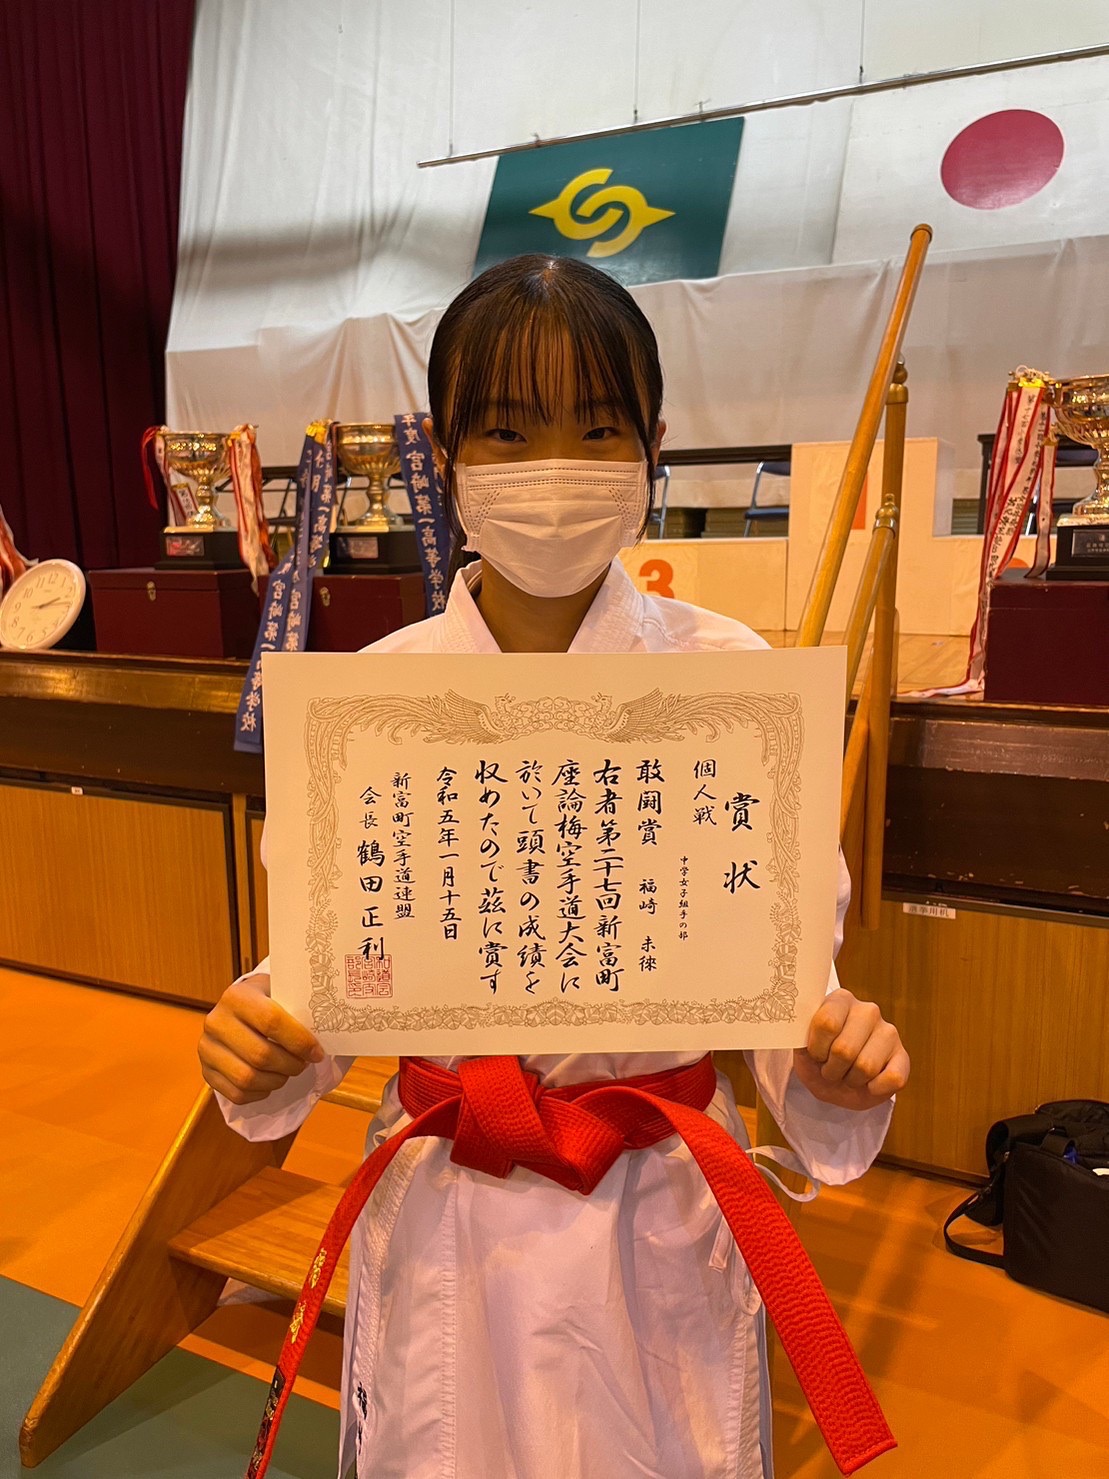 賞状
個人戦
中学女子組手の部
敢闘賞 福崎 未徠
右者第二十七回新富町
座論梅空手道大会に
於いて頭書の成績を
収めたので茲に賞す
令和五年一月十五日
新富町空手道連盟
会長 鶴田正利
年度宮崎第一高等学校
宮崎第一高等学校
3
選挙用机